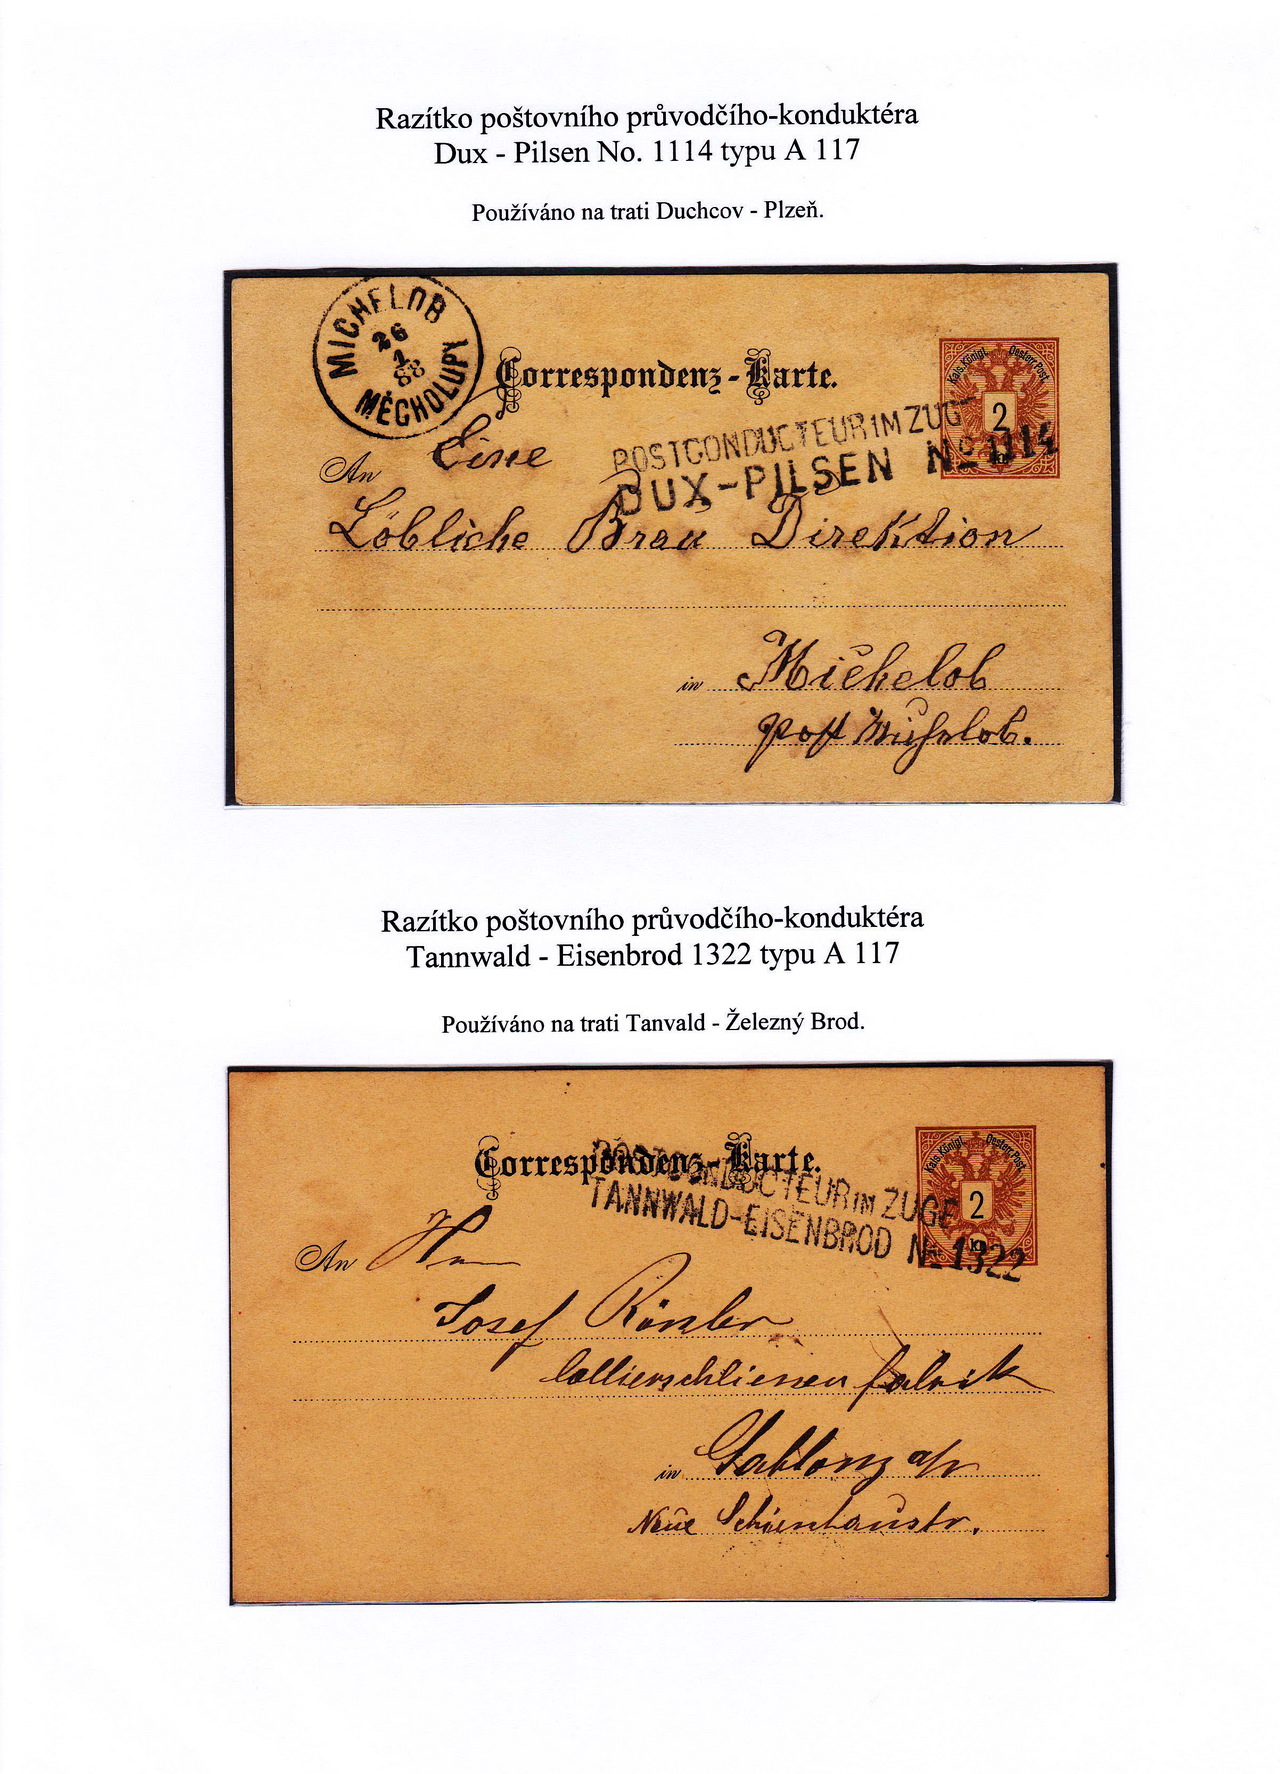 Razítko poštovního průvodčího-konduktéra
Dux - Pilsen No. 1114 typu A 117
Používáno na trati Duchcov - Plzeň.
MICHELOB
26
1
88
MĚCHOLUPY
Correspondenz-Karte.
Kais. Königl. Oesterr. Post.
2
Kr.
POSTCONDUCTEUR IM ZUGE
DUX-PILSEN No 1114
An Eine
Löbliche Brau Direktion
in Michelob
post Michelob.
Razítko poštovního průvodčího-konduktéra
Tannwald - Eisenbrod 1322 typu A 117
Používáno na trati Tanvald - Železný Brod.
Correspondenz-Karte.
Kais. Königl. Oesterr. Post.
2
Kr.
POSTCONDUCTEUR IM ZUGE
TANNWALD-EISENBROD No 1322
An Herrn
Josef
fabrik
in Gablonz a/n
Neue